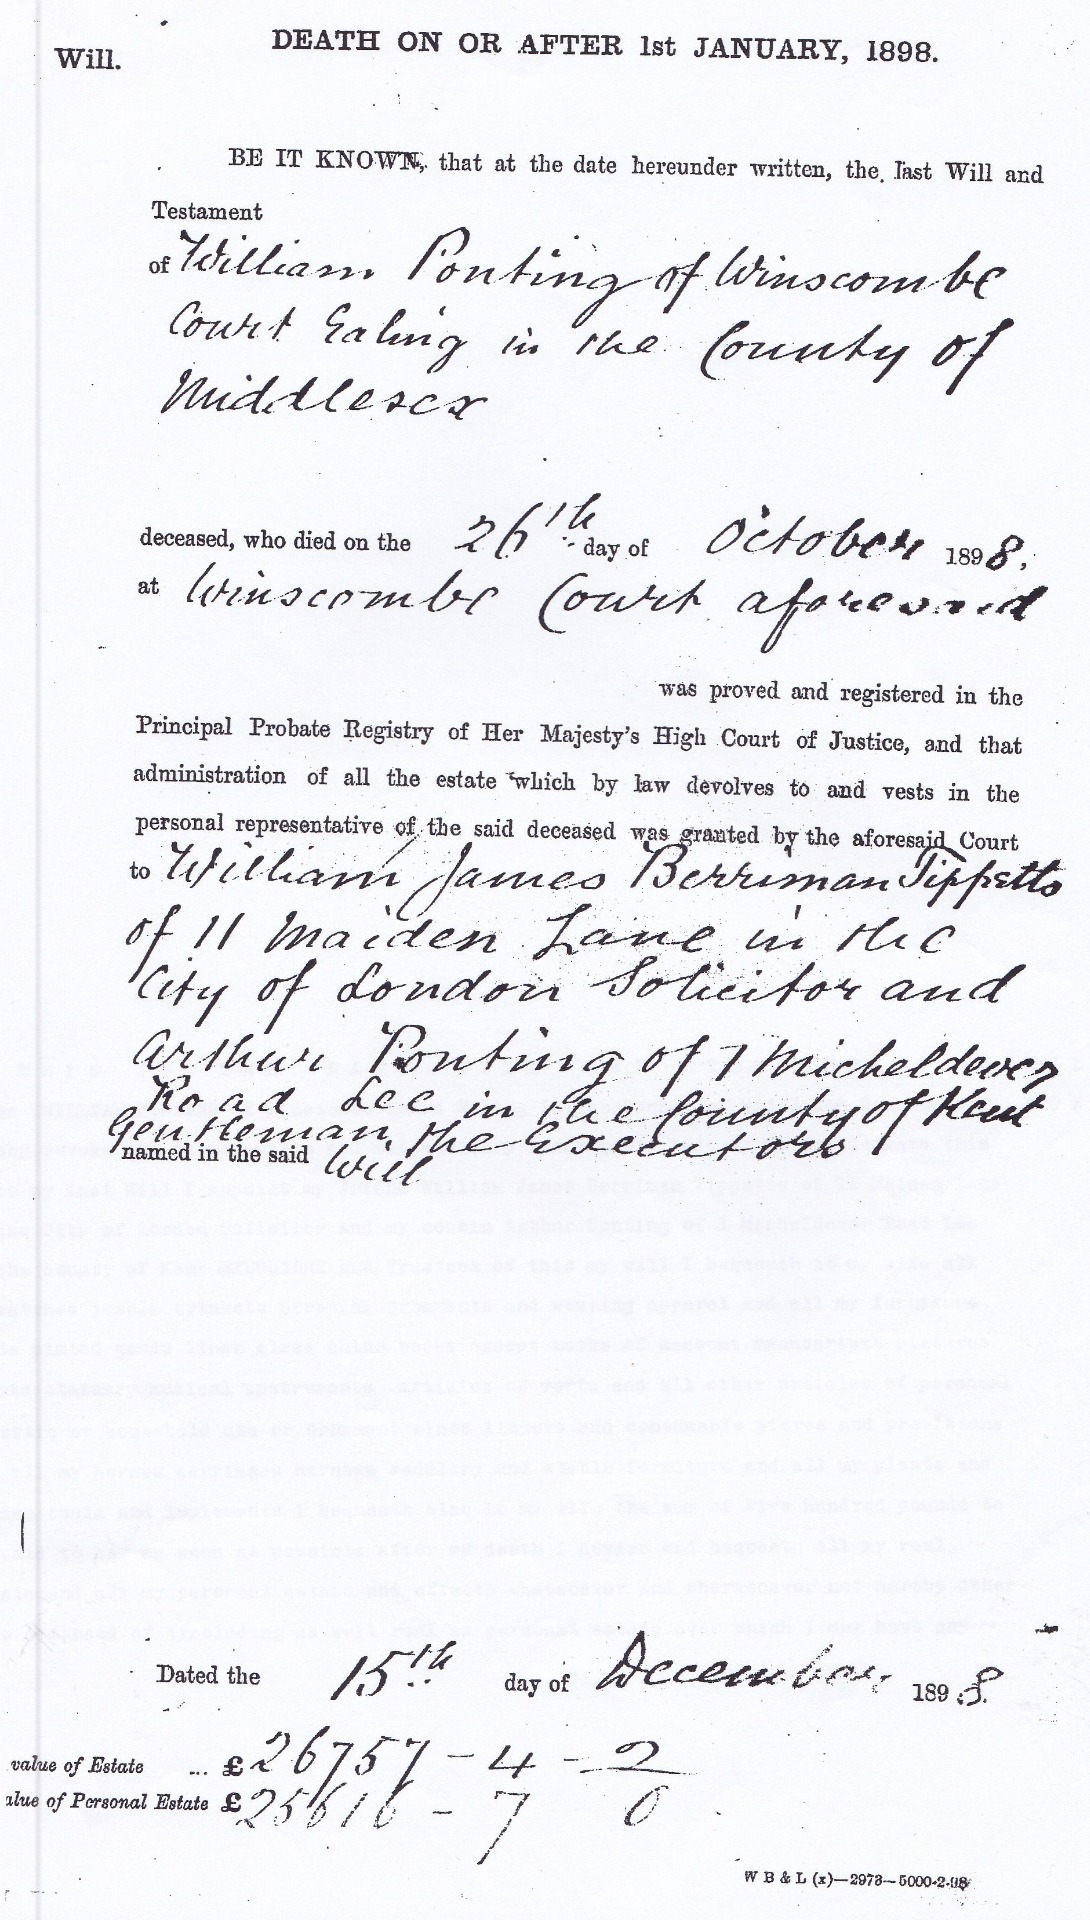 Will.
DEATH ON OR AFTER 1st JANUARY, 1898.
BE IT KNOWN, that at the date hereunder written, the last Will and
Testament
of William Ponting of Winscombe
Court Ealing in the County of
Middlesex
deceased, who died on the 26th day of October 1898.
at Winscombe Court aforesaid
was proved and registered in the
Principal Probate Registry of Her Majesty's High Court of Justice, and that
administration of all the estate which by law devolves to and vests in the
personal representative of the said deceased was granted by the aforesaid Court
to William James Berriman Tippetts
of 11 Maiden Lane in the
City of London Solicitor and
Arthur Ponting of 1 Micheldever
Road Lee in the County of Kent
Gentleman, the Executors
named in the said Will
Dated the 15th day of December 1898.
value of Estate ... £26757 - 4 - 2
alue of Personal Estate £25616 - 7 0
W B & L (x)—2973—5000-2-98